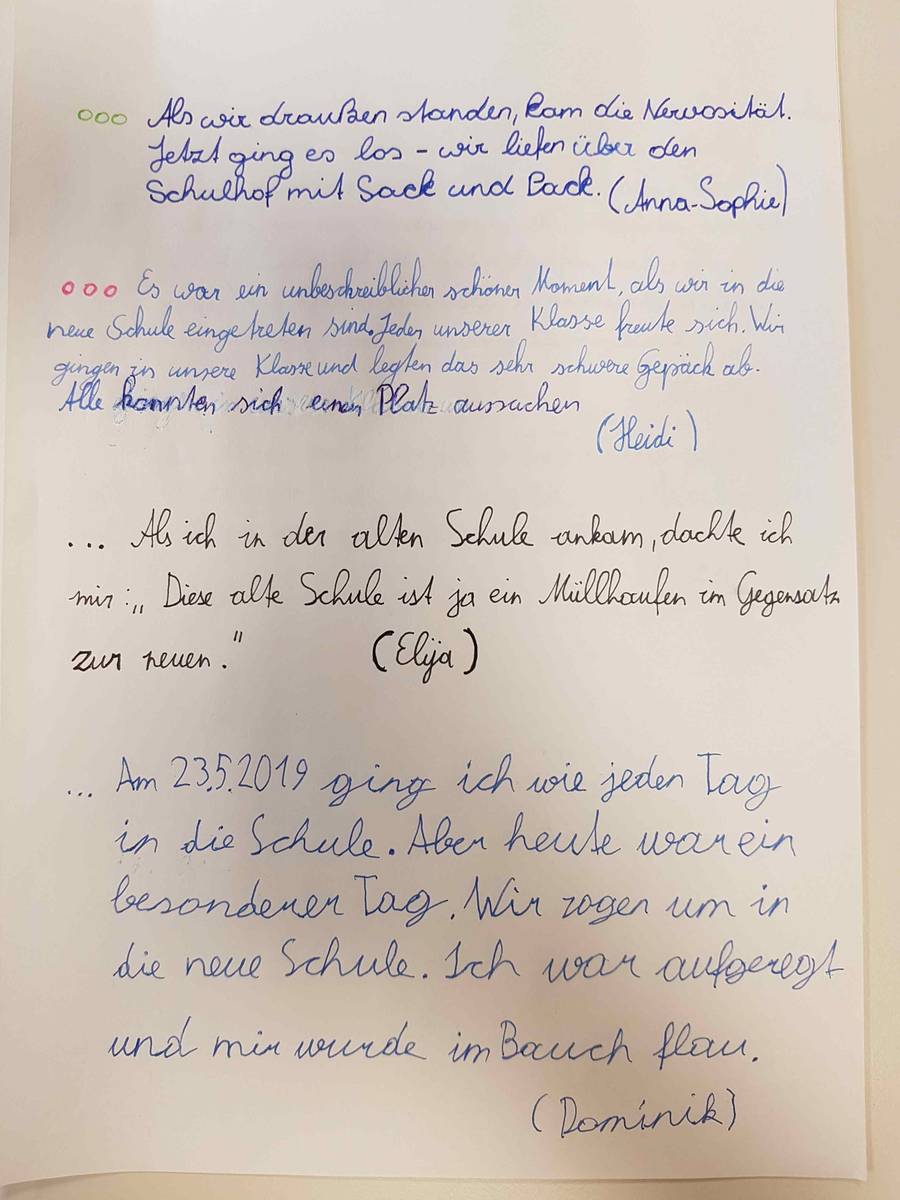 ooo Als wir draußen standen, kam die Nervosität.
Jetzt ging es los - wir liefen über den
Schulhof mit Sack und Pack. (Anna-Sophie)
ooo Es war ein unbeschreiblicher schöner Moment, als wir in die
neue Schule eingetreten sind. Jeder unserer Klasse freute sich. Wir
gingen in unsere Klasse und legten das sehr schwere Gepäck ab.
Alle konnten sich einen Platz aussuchen
(Heidi)
... Als ich in der alten Schule ankam, dachte ich
mir: „Diese alte Schule ist ja ein Müllhaufen im Gegensatz
zur neuen." (Elija)
... Am 23.5.2019 ging ich wie jeden Tag
in die Schule. Aber heute war ein
besonderer Tag. Wir zogen um in
die neue Schule. Ich war aufgeregt
und mir wurde im Bauch flau.
(Dominik)